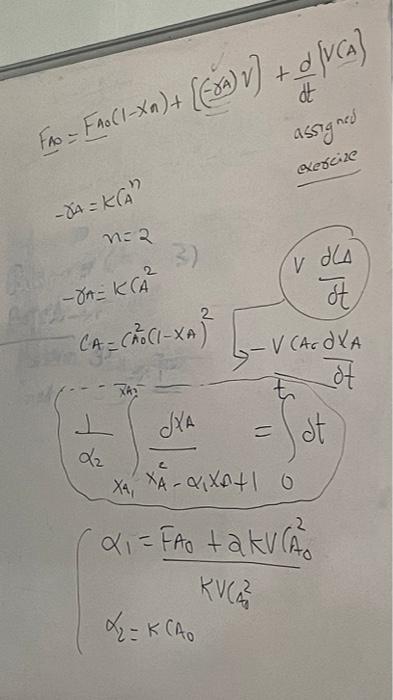 F_A0 = F_A0(1-X_A) + [(-r_A)V] + d/dt {V C_A}
assigned
exercise
-r_A = K C_A^n
n = 2
-r_A = K C_A^2
3)
V dC_A/dt
C_A = C_A0^2 (1-X_A)^2
→ -V C_A0 dX_A/dt
1/α_2 ∫_{X_A1}^{X_A2} dX_A / (X_A^2 - α_1 X_A + 1) = ∫_0^t dt
α_1 = (F_A0 + 2KV C_A0^2) / (KV C_A0^2)
α_2 = K C_A0